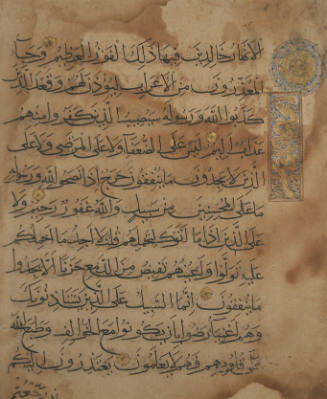 الانهار خالدين فيها ذلك الفوز العظيم وجا
المعذرون من الاعراب ليوذن لهم وقعد الذين
كذبوا الله ورسوله سيصيب الذين كفروا منهم
عذاب اليم ليس على الضعفا ولا على المرضى ولا على
الذين لا يجدون ما ينفقون حرج اذا نصحوا لله ورسوله
ما على المحسنين من سبيل والله غفور رحيم ولا
على الذين اذا ما اتوك لتحملهم قلت لا اجد ما احملكم
عليه تولوا واعينهم تفيض من الدمع حزنا الا يجدوا
ما ينفقون انما السبيل على الذين يستاذنونك
وهم اغنيا رضوا بان يكونوا مع الخوالف وطبع الله
على قلوبهم فهم لا يعلمون يعتذرون اليكم
اذا رجعتم